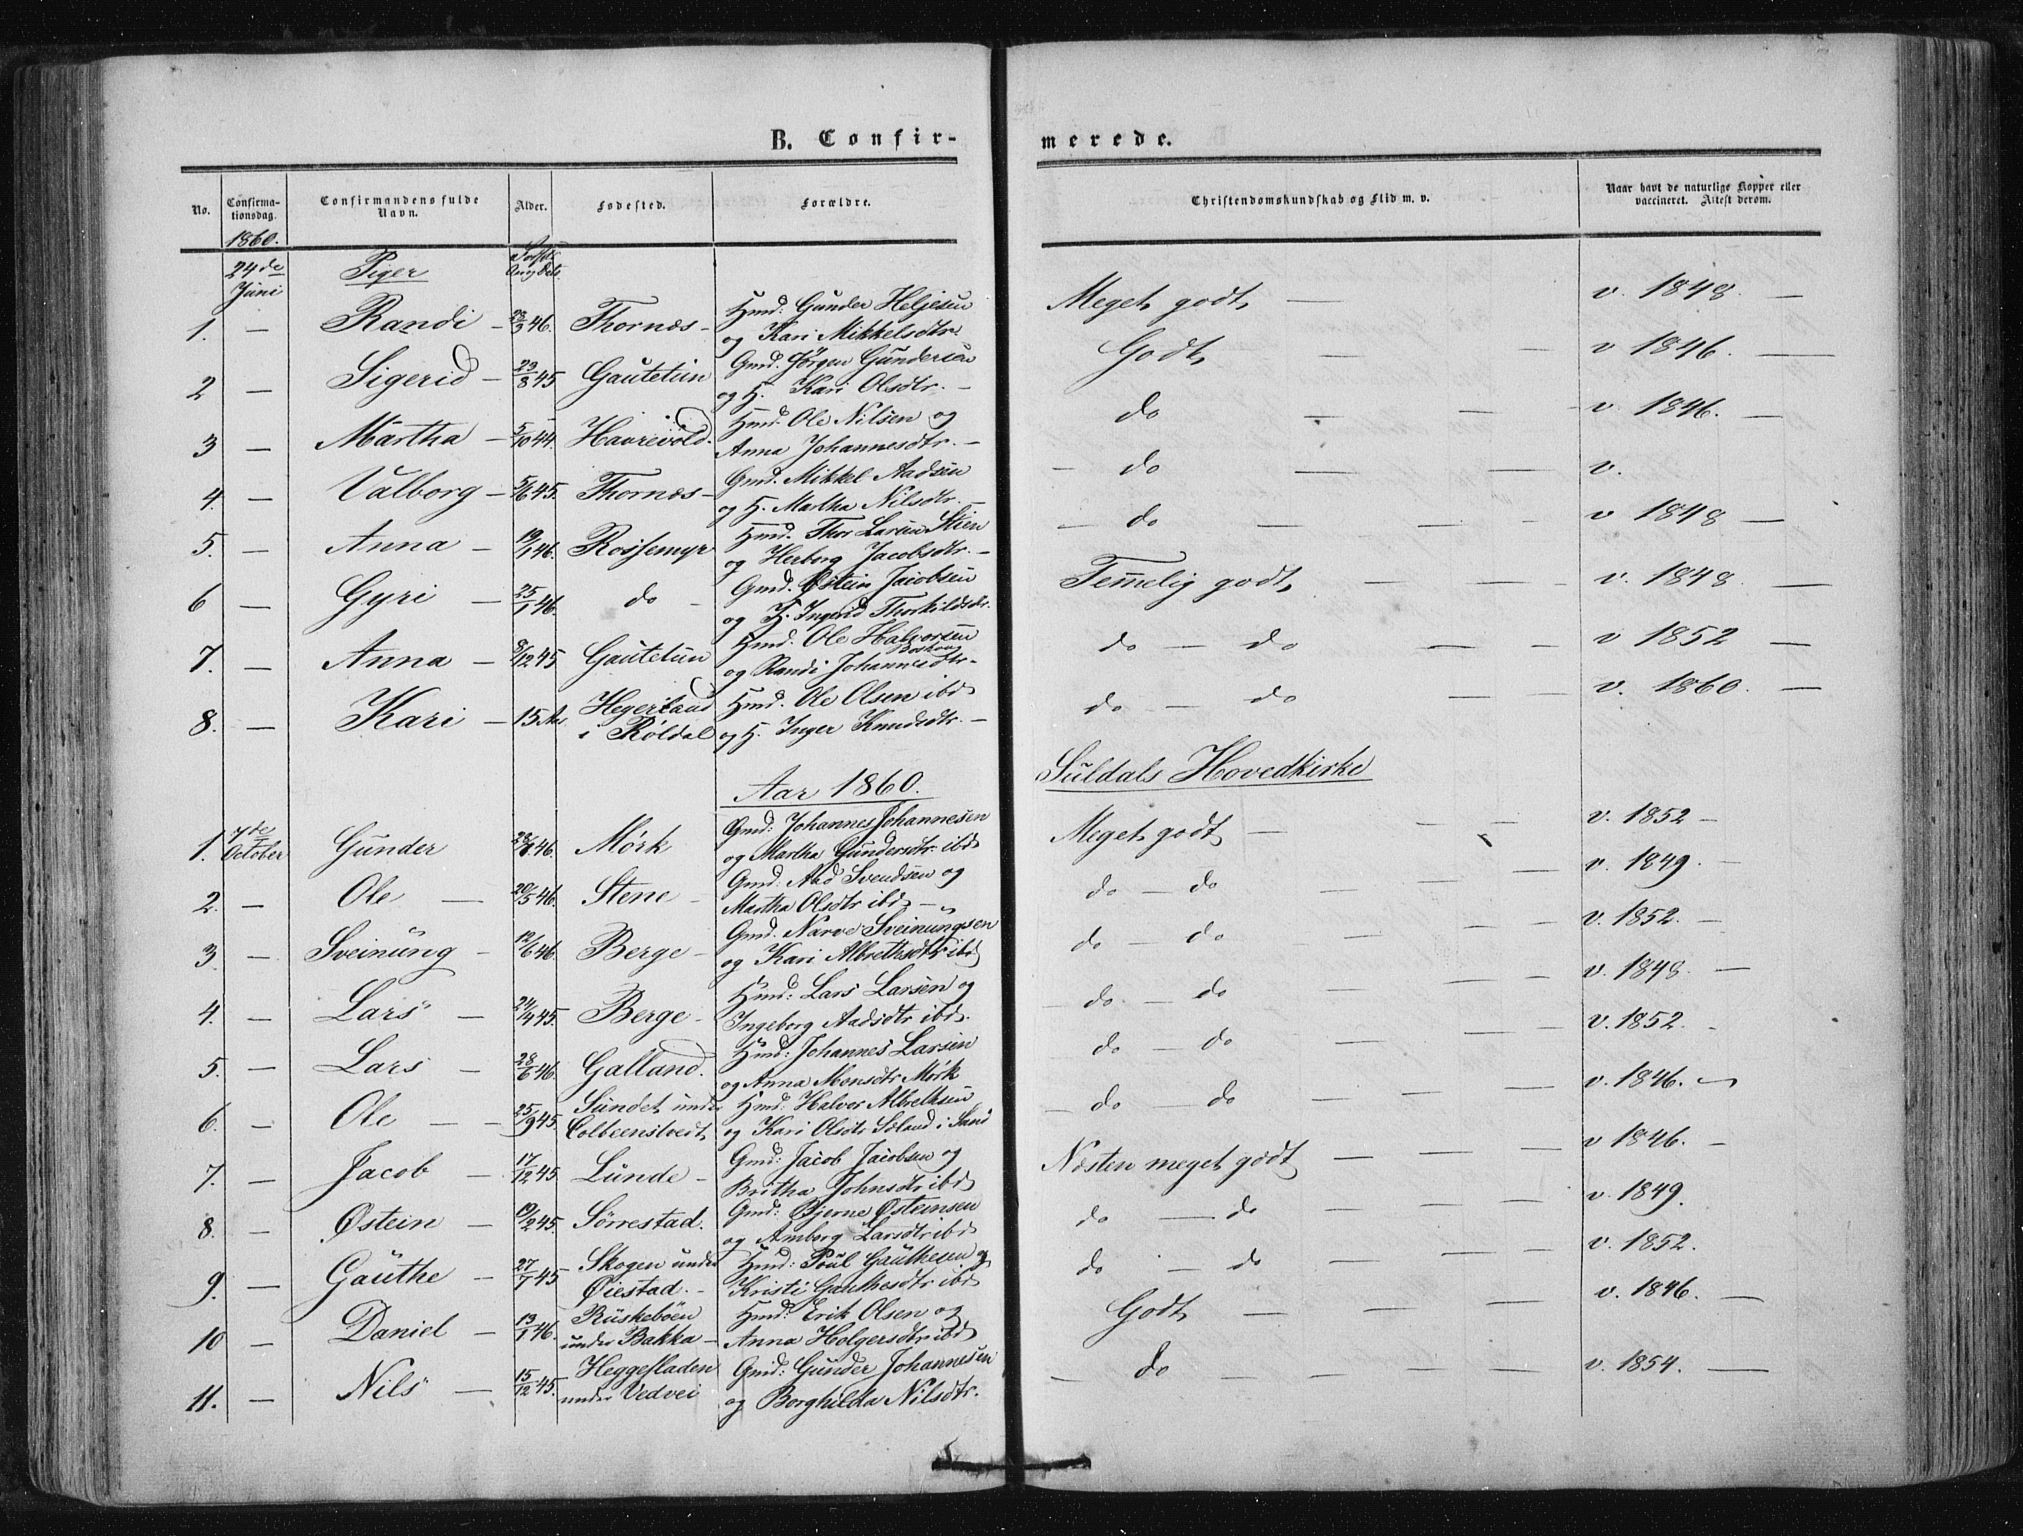 B. Confir-
merede.
No.
Confirma-
tionsdag.
Confirmandens fulde
Navn.
Alder.
Fødested.
Forældre.
Christendomskundskab og Flid m. v.
Naar havt de naturlige Kopper eller
vaccineret. Attest derom.
1860.
24de Piger
Juni
1. — Randi — 46. Thornæs — Hmd: Gunder Heljesen
og Kari Mikkelsdtr. Meget godt — v. 1848. —
2 — Sigerid — 29/8 45 Gautetun Gmd. Jørgen Gundersen
og H. Kari Olsdtr. — Godt — — v 1846. —
3 — Martha — 5/10 44. Havrevold. Hmd. Ole Nilsen og
Anna Johannesdtr. — do — — v. 1846. —
4. — Valborg — 5/6 45. Thornæs — Gmd. Mikkel Aadsen
og H. Martha Nilsdtr. — — do — — v.
5. — Anna — 19/1 46. Rossemyr Hmd. Thor Larsen Stien
og Herborg Jacobsdtr. — — do — — v 1848 —
6 — Gyri — 25/1 46. do — Gmd. Østein Jacobsen
og H. Ingerid Thorkildsdr. Temelig godt — v. 1848. —
7. — Anna — 8/12 45 Gautetun Hmd. Ole Halvorsen
og Randi Johannesdtr. do — do — v 1852 —
8. — Kari — 15 Ar Hegerland
i Røldal Hmd. Ole Olsen ibd
og H. Inger Knudsdtr. — do — do — v. 1860. —
Aar 1860. Suldals Hovedkirke
1. 7de
October Gunder 46. Mørk Gmd: Johannes Johannesen
og Martha Gundersdtr ibd Meget godt — v. 1852 —
2. — Ole — 20/5 46. Stene — Gmd: Aad Svendsen og
Martha Olsdtr ibd — do — do — v. 1849. —
3 — Sveinung — 12/6 46. Berge — Gmd. Narve Sveinungsen
og Kari Albrethsdtr ibd do — do — v. 1852. —
4. — Lars — 24/9 45. Berge — Hmd: Lars Larsen og
Ingeborg Aadsdtr ibd. — do — do — v. 1848. —
5. — Lars — 28/6 46. Galland. Hmd: Johannes Larsen
og Anna Monsdtr Mørk do — do — v. 1852. —
6. — Ole — 25/9 45. Sundet under
Colbeenstvedt Hmd: Halvor Albrethsen
og Kari Olsdtr Sæland i Sand — do — do — v. 1846. —
7. — Jacob — 17/12 45. Lunde — Gmd: Jacob Jacobsen og
Britha Johnsdtr ibd Næsten meget godt — v 1846. —
8. — Østein — 19/12 45. Sørrestad. Gmd: Bjerne Østeinsen
og Amborg Larsdtr ibd do — do — v. 1849.
9. — Gauthe — 27/1 45 Skogen under
Øiestad. — Hmd: Poul Gauthesen og
Kristi Gauthesdtr ibd do — do — v. 1852.
10 — Daniel — 13/1 46. Ruskebøen
under Bakka — Hmd: Erik Olsen og
Anna Holgersdtr ibd Godt — v. 1846. —
11. — Nils — 15/12 45. Heggefladen
under Vedvei Gmd: Gunder Johannesen
og Borghilda Nilsdtr. — do — v. 1854. —